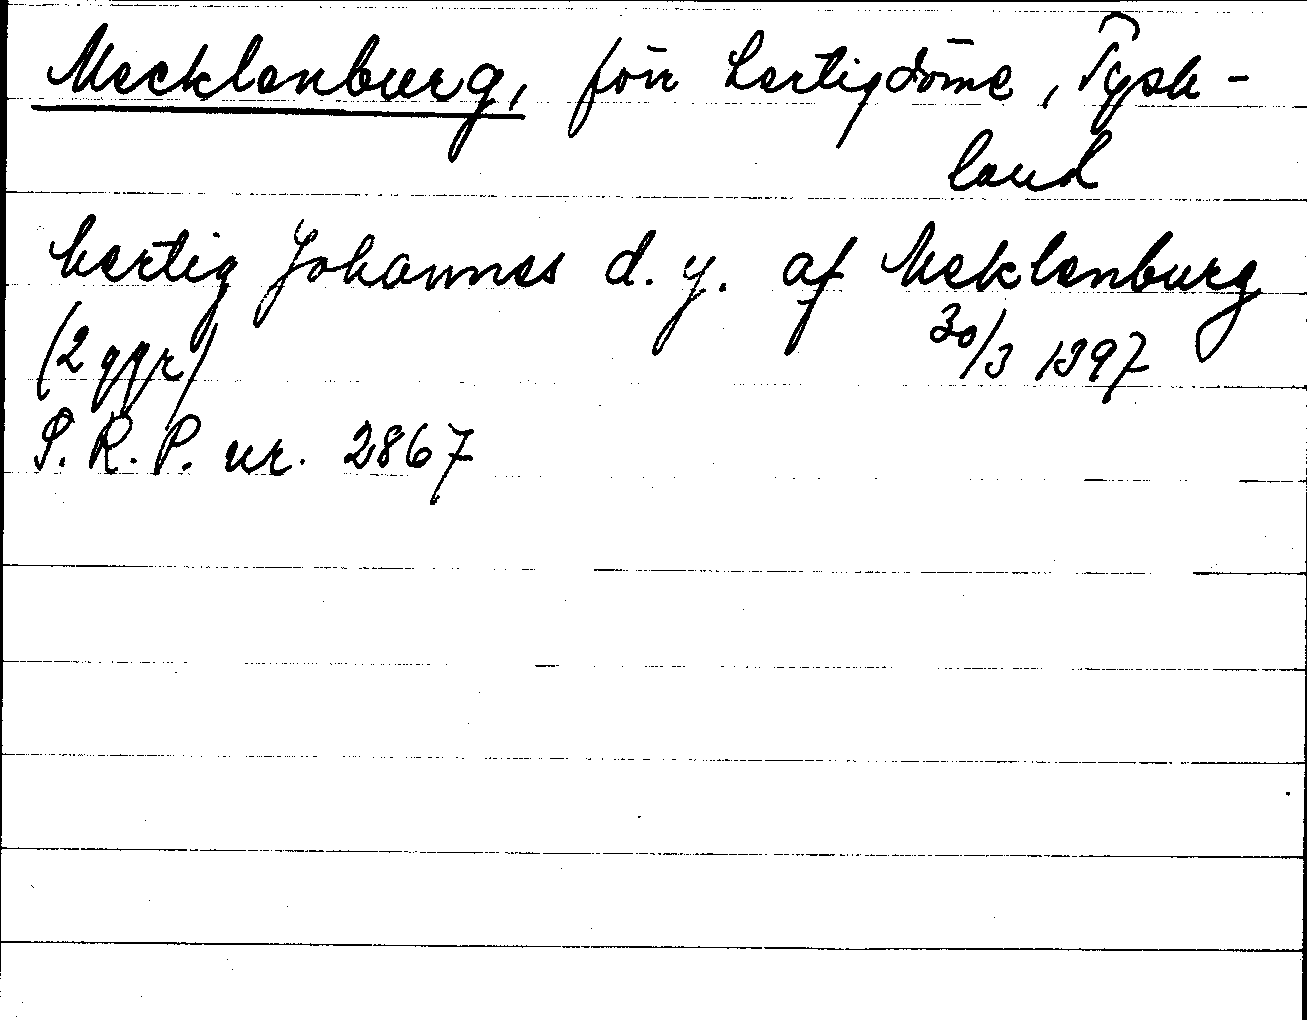 Mecklenburg, förr hertigdöme, Tysk-
land
hertig Johannes d. y. af Meklenburg
(2 ggr) 30/3 1397
S. R. P. nr. 2867